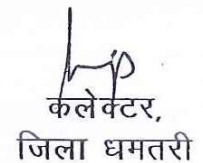 कलेक्टर,
जिला धमतरी